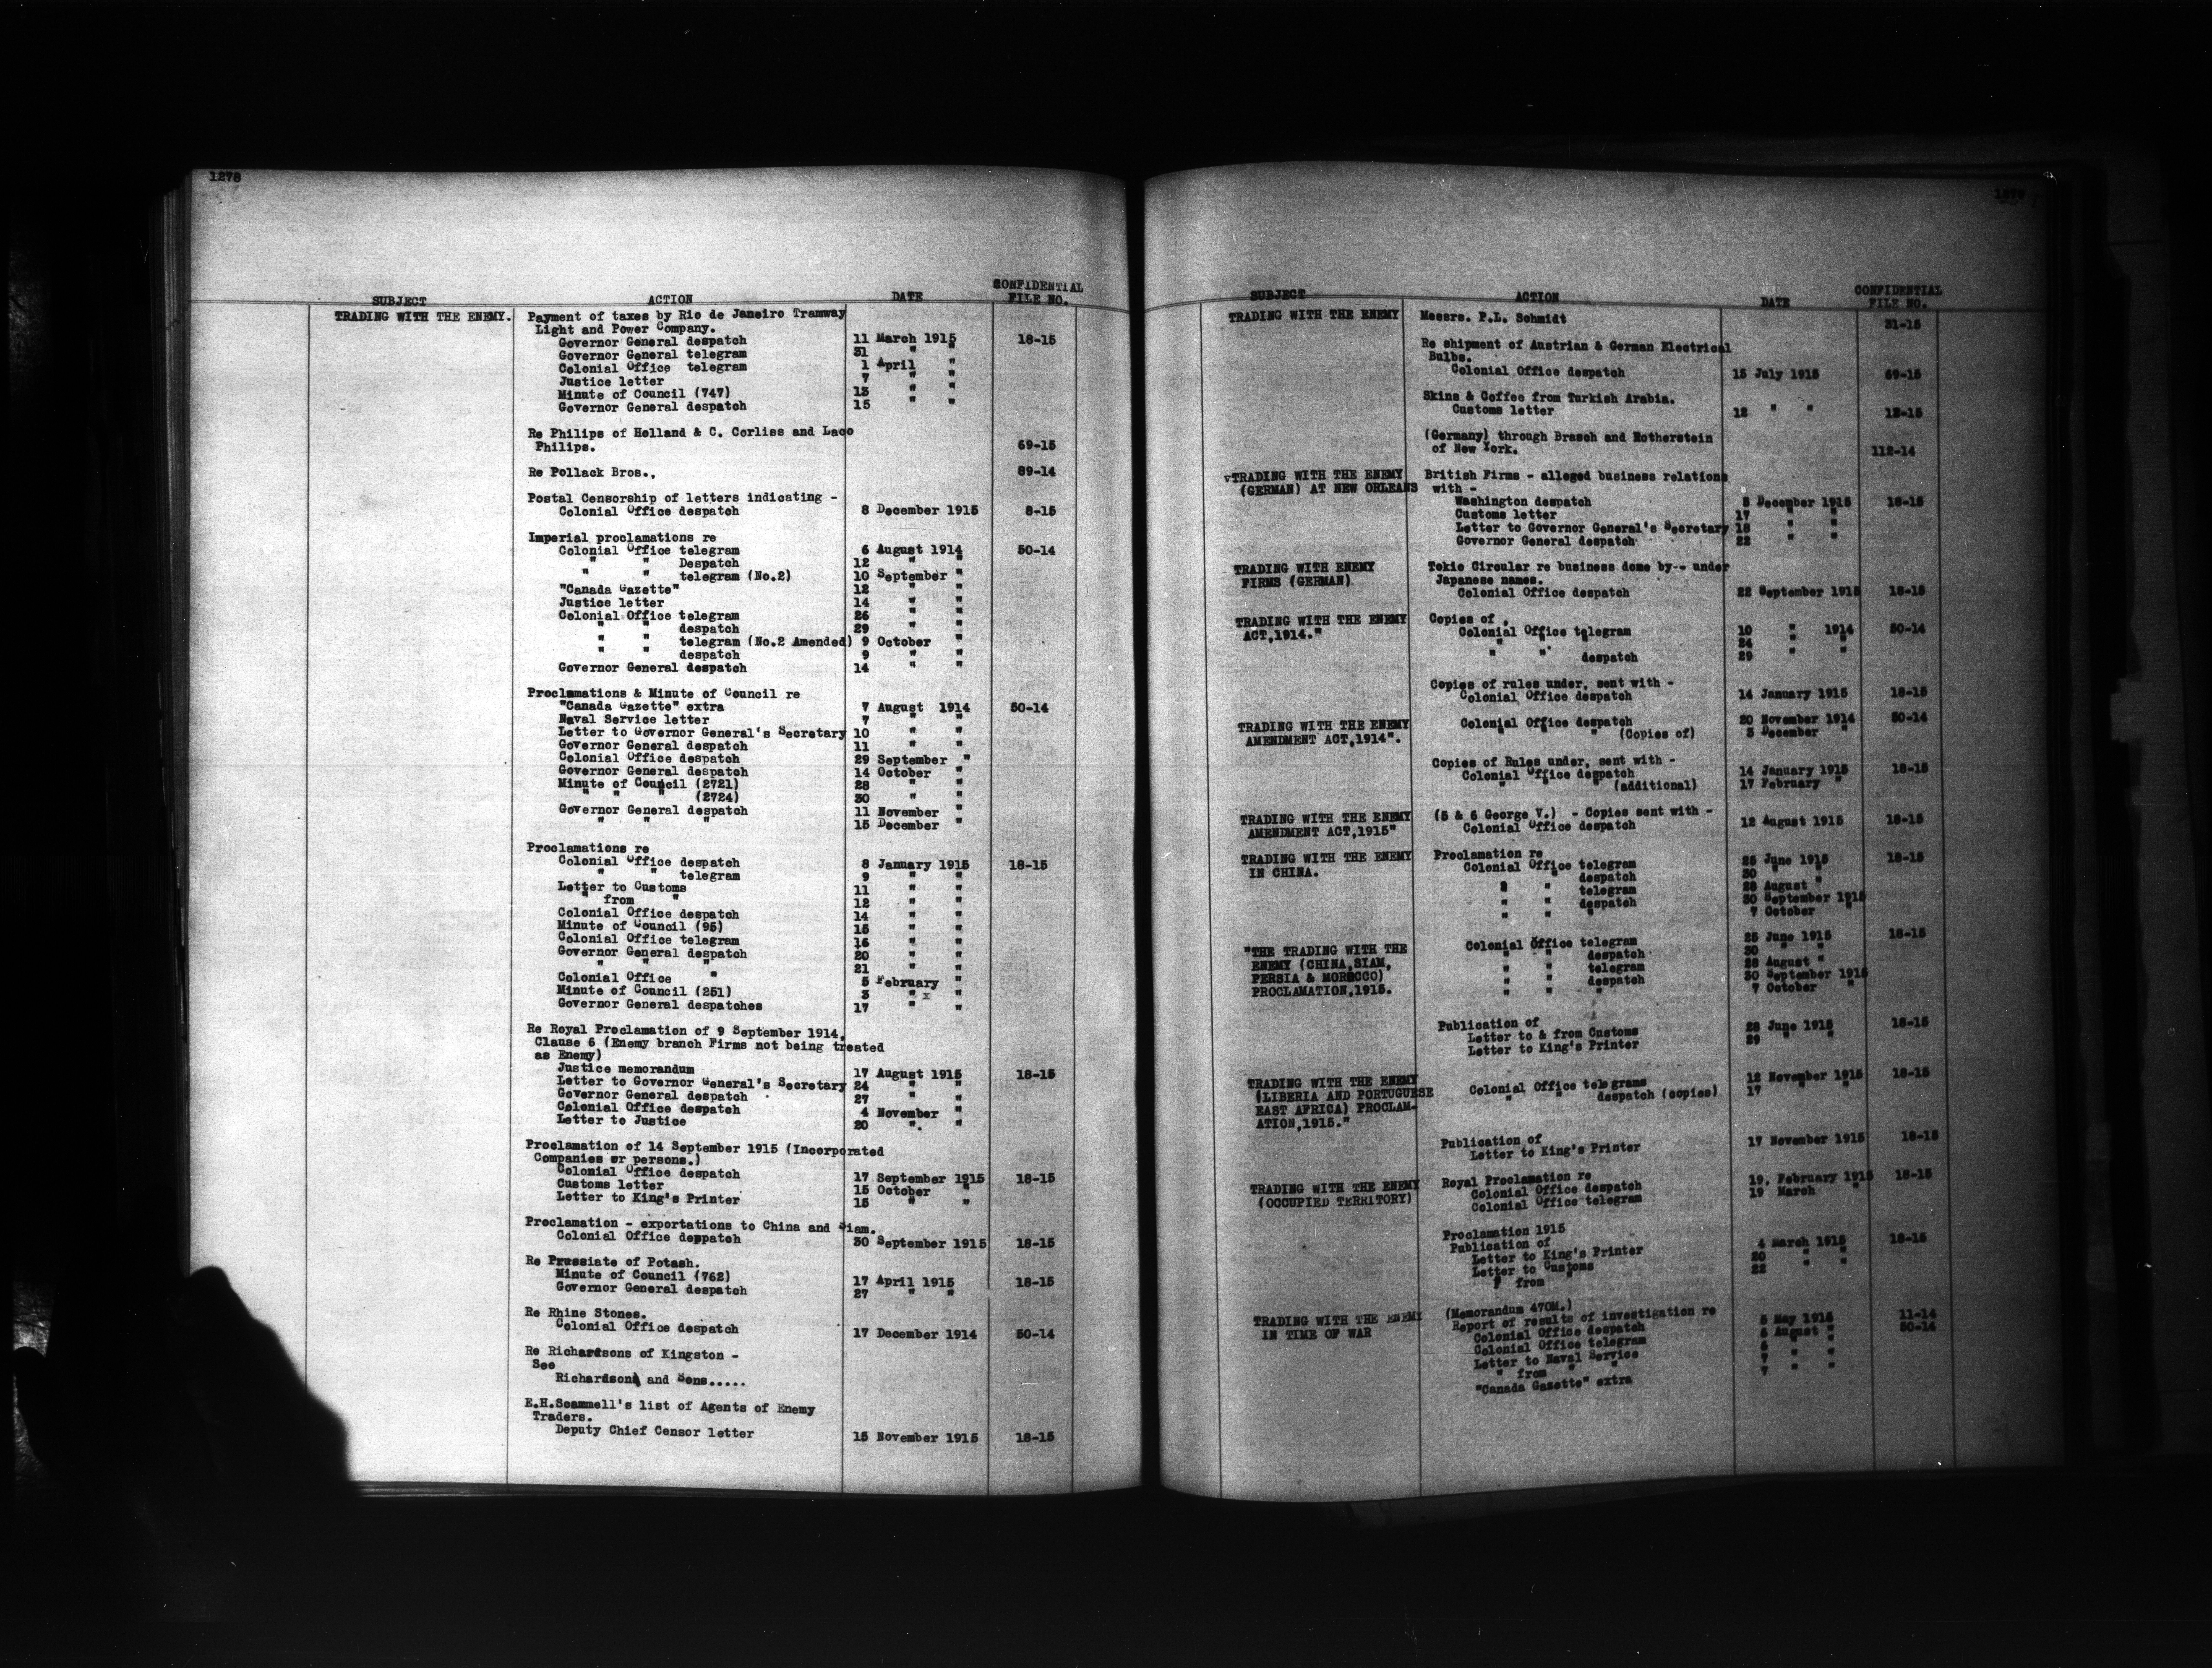 1278
SUBJECT ACTION DATE CONFIDENTIAL FILE NO.
TRADING WITH THE ENEMY. Payment of taxes by Rio de Janeiro Tramway
Light and Power Company.
Governor General despatch 11 March 1915 18-15
Governor General telegram 31 " "
Colonial Office telegram 1 April "
Justice letter 7 " "
Minute of Council (747) 13 " "
Governor General despatch 15 " "
Re Philips of Holland & C. Corliss and Laco
Philips. 69-15
Re Pollack Bros., 89-14
Postal Censorship of letters indicating -
Colonial Office despatch 8 December 1915 8-15
Imperial proclamations re
Colonial Office telegram 6 August 1914 50-14
" " Despatch 12 " "
" " telegram (No.2) 10 September "
"Canada Gazette" 12 " "
Justice letter 14 " "
Colonial Office telegram 26 " "
" " despatch 29 " "
" " telegram (No.2 Amended) 9 October "
" " despatch 9 " "
Governor General despatch 14 " "
Proclamations & Minute of Council re
"Canada Gazette" extra 7 August 1914 50-14
Naval Service letter 7 " "
Letter to Governor General's Secretary 10 " "
Governor General despatch 11 " "
Colonial Office despatch 29 September "
Governor General despatch 14 October "
Minute of Council (2721) 28 " "
" " " (2724) 30 " "
Governor General despatch 11 November "
" " " 15 December "
Proclamations re
Colonial Office despatch 8 January 1915 18-15
" " telegram 9 " "
Letter to Customs 11 " "
" from " 12 " "
Colonial Office despatch 14 " "
Minute of Council (95) 15 " "
Colonial Office telegram 16 " "
Governor General despatch 20 " "
" " " 21 " "
Colonial Office " 5 February "
Minute of Council (251) 3 " x "
Governor General despatches 17 " "
Re Royal Proclamation of 9 September 1914,
Clause 6 (Enemy branch Firms not being treated
as Enemy)
Justice memorandum 17 August 1915 18-15
Letter to Governor General's Secretary 24 " "
Governor General despatch 27 " "
Colonial Office despatch 4 November "
Letter to Justice 20 " "
Proclamation of 14 September 1915 (Incorporated
Companies or persons.)
Colonial Office despatch 17 September 1915 18-15
Customs letter 15 October "
Letter to King's Printer 15 " "
Proclamation - exportations to China and Siam.
Colonial Office despatch 30 September 1915 18-15
Re Prussiate of Potash.
Minute of Council (762) 17 April 1915 18-15
Governor General despatch 27 " "
Re Rhine Stones.
Colonial Office despatch 17 December 1914 50-14
Re Richardsons of Kingston -
See
Richardson and Sons.....
E.H.Scammell's list of Agents of Enemy
Traders.
Deputy Chief Censor letter 15 November 1915 18-15
1279
SUBJECT ACTION DATE CONFIDENTIAL FILE NO.
TRADING WITH THE ENEMY Messrs. P.L. Schmidt 31-15
Re shipment of Austrian & German Electrical
Bulbs.
Colonial Office despatch 15 July 1915 69-15
Skins & Coffee from Turkish Arabia.
Customs letter 12 " " 12-15
(Germany) through Brasch and Rotherstein
of New York. 112-14
vTRADING WITH THE ENEMY British Firms - alleged business relations
(GERMAN) AT NEW ORLEANS with -
Washington despatch 8 December 1915 18-15
Customs letter 17 " "
Letter to Governor General's Secretary 18 " "
Governor General despatch 22 " "
TRADING WITH ENEMY Tokio Circular re business done by-- under
FIRMS (GERMAN) Japanese names.
Colonial Office despatch 22 September 1915 18-15
TRADING WITH THE ENEMY Copies of
ACT,1914." Colonial Office telegram 10 " 1914 50-14
" " " 24 " "
" " despatch 29 " "
Copies of rules under, sent with -
Colonial Office despatch 14 January 1915 18-15
TRADING WITH THE ENEMY Colonial Office despatch 20 November 1914 50-14
AMENDMENT ACT,1914". " " " (Copies of) 3 December "
Copies of Rules under, sent with -
Colonial Office despatch 14 January 1915 18-15
" " " (additional) 17 February "
TRADING WITH THE ENEMY (5 & 6 George V.) - Copies sent with -
AMENDMENT ACT,1915" Colonial Office despatch 12 August 1915 18-15
TRADING WITH THE ENEMY Proclamation re
IN CHINA. Colonial Office telegram 25 June 1915 18-15
" " despatch 30 " "
" " telegram 28 August "
" " despatch 30 September 1915
" " " 7 October "
"THE TRADING WITH THE Colonial Office telegram 25 June 1915 18-15
ENEMY (CHINA,SIAM, " " despatch 30 " "
PERSIA & MOROCCO) " " telegram 28 August "
PROCLAMATION,1915. " " despatch 30 September 1915
" " " 7 October "
Publication of
Letter to & from Customs 28 June 1915 18-15
Letter to King's Printer 29 " "
TRADING WITH THE ENEMY Colonial Office telegrams 12 November 1915 18-15
(LIBERIA AND PORTUGUESE " " despatch (copies) 17 " "
EAST AFRICA) PROCLAM-
ATION,1915."
Publication of
Letter to King's Printer 17 November 1915 18-15
TRADING WITH THE ENEMY Royal Proclamation re
(OCCUPIED TERRITORY) Colonial Office despatch 19, February 1915 18-15
Colonial Office telegram 19 March "
Proclamation 1915
Publication of
Letter to King's Printer 4 March 1915 18-15
Letter to Customs 20 " "
" from " 22 " "
TRADING WITH THE ENEMY (Memorandum 470M.)
IN TIME OF WAR Report of results of investigation re 11-14
Colonial Office despatch 5 May 1915 50-14
Colonial Office telegram 6 August "
Letter to Naval Service 6 " "
" from " " 7 " "
"Canada Gazette" extra 7 " "